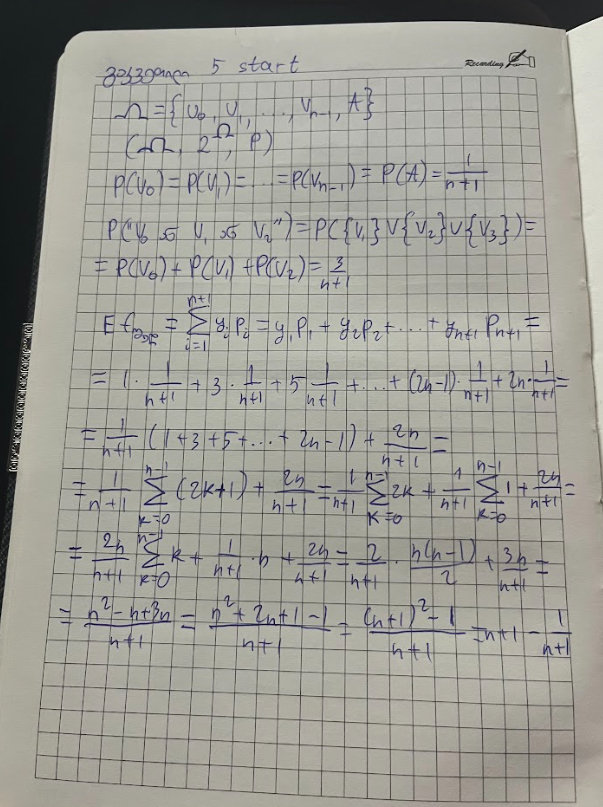 5 start
Recording
Ω = {V₀, V₁, ..., Vₙ₋₁, A}
(Ω, 2^Ω, P)
P(V₀) = P(V₁) = ... = P(Vₙ₋₁) = P(A) = 1/(n+1)
P("V₀ ან V₁ ან V₂") = P({V₁} ∪ {V₂} ∪ {V₃}) =
= P(V₀) + P(V₁) + P(V₂) = 3/(n+1)
E f = Σ_{i=1}^{n+1} yᵢpᵢ = y₁p₁ + y₂p₂ + ... + yₙ₊₁pₙ₊₁ =
= 1 · 1/(n+1) + 3 · 1/(n+1) + 5 1/(n+1) + ... + (2n-1) · 1/(n+1) + 2n · 1/(n+1) =
= 1/(n+1) (1+3+5+...+2n-1) + 2n/(n+1) =
= 1/(n+1) Σ_{k=0}^{n-1} (2k+1) + 2n/(n+1) = 1/(n+1) Σ_{k=0}^{n-1} 2k + 1/(n+1) Σ_{k=0}^{n-1} 1 + 2n/(n+1) =
= 2n/(n+1) Σ_{k=0}^{n-1} k + 1/(n+1) · n + 2n/(n+1) = 2/(n+1) · n(n-1)/2 + 3n/(n+1) =
= (n²-n+3n)/(n+1) = (n²+2n+1-1)/(n+1) = ((n+1)²-1)/(n+1) = n+1 - 1/(n+1)